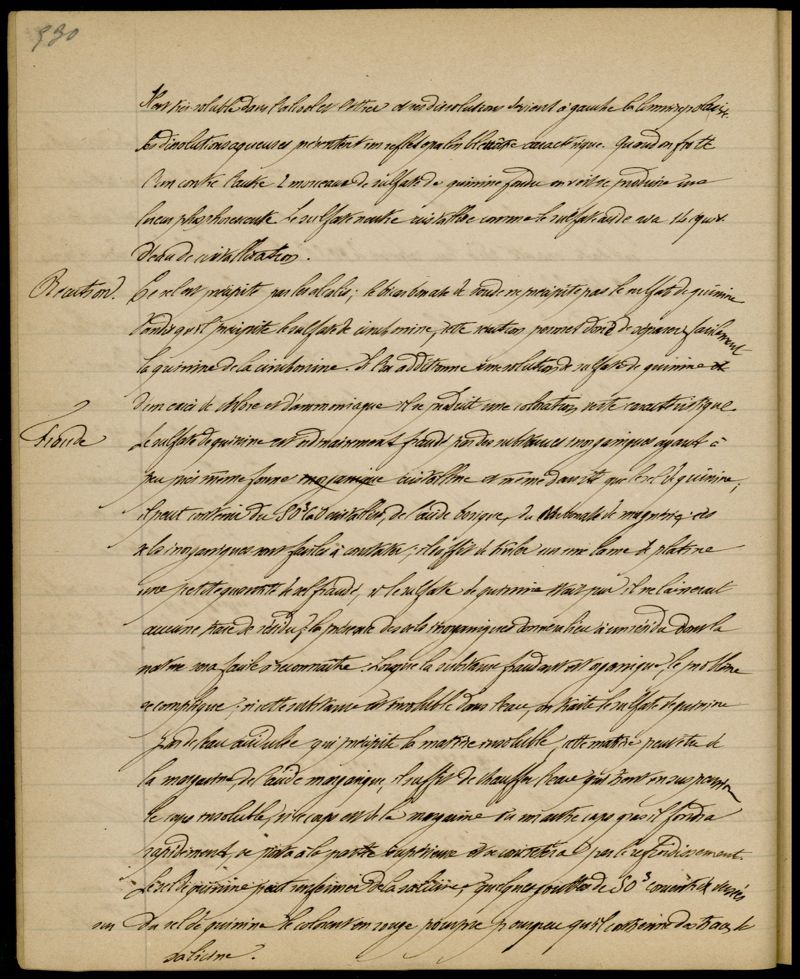 530
Il est très soluble dans l'alcool et l'éther et ses dissolutions dévient à gauche la lumière polarisée.
Les dissolutions aqueuses présentent un reflet opalin bleuâtre caractéristique. Quand on frotte
l'un contre l'autre 2 morceaux de sulfate de quinine fondu on voit se produire une
lueur phosphorescente. Le sulfate neutre cristallise comme le sulfate acide
d'eau de cristallisation.
Réaction. Ce sel est précipité par les alcalis; le bicarbonate de soude ne précipite pas le sulfate de quinine
tandis qu'il précipite le sulfate de cinchonine, cette réaction permet donc de séparer facilement
la quinine de la cinchonine. Si l'on additionne une solution de sulfate de quinine
d'un excès de chlore et d'ammoniaque il se produit une coloration verte caractéristique.
Fraude Le sulfate de quinine est ordinairement fraudé par des substances inorganiques ayant à
peu près même forme cristalline et même densité que le sel de quinine;
il peut contenir du SO³CaO cristallisé, de l'acide borique, du carbonate de magnésie; ces
sels inorganiques sont faciles à constater; il suffit de brûler sur une lame de platine
une petite quantité de sel fraudé, si le sulfate de quinine était pur il ne laisserait
aucune trace de résidu; la présence des sels inorganiques donnera lieu à un résidu dont la
nature sera facile à reconnaître. Lorsque la substance fraudant est organique, le problème
se complique; si cette substance est insoluble dans l'eau, on traite le sulfate de quinine
par de l'eau acidulée qui précipite la matière insoluble, cette matière peut être de
la margarine, de l'acide margarique, il suffit de chauffer l'eau qui tient en suspension
le corps insoluble, si ce corps est de la margarine ou un autre corps gras il fondra
rapidement, se portera à la partie supérieure et se concrétera par le refroidissement.
Le sel de quinine peut renfermer de la salicine, quelques gouttes de SO³ concentré versées
sur du sel de quinine le colorent en rouge pourpre pour peu qu'il contienne des traces de
salicine.